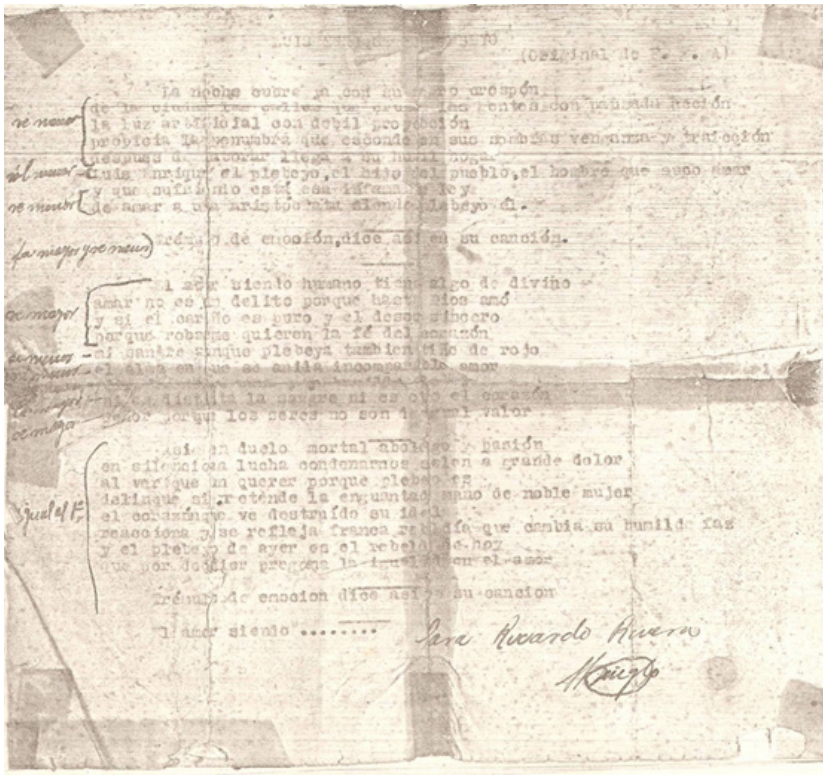 (Original de F. P. A)
La noche cubre ya con su negro crespón
de la ciudad las calles que cruzan las gentes con pausada acción
la luz artificial con debil proyección
propicia la penumbra que esconde en sus sombras venganza y traición
despues de laborar llega a su humil hogar
Luis Enrique el plebeyo, el hijo del pueblo, el hombre que supo amar
y que sufriendo está esa infamante ley
de amar a una aristócrata siendo plebeyo él.
re menor
re menor
Trémulo de emoción, dice así en su canción.
fa mayor y re menor)
El amor siendo humano tiene algo de divino
amar no es un delito porque hasta Dios amó
y si el cariño es puro y el deseo sincero
porque robarme quieren la fé del corazón
re mayor
mi sangre aunque plebeya tambien tiñe de rojo
el alma en que se anida incomparable amor
ni se distinta la sangre ni es otro el corazón
señor porque los seres no son de igual valor
re mayor
Asi en duelo mortal abolengo y pasión
en silenciosa lucha condenarnos suelen a grande dolor
al ver que un querer porque plebeyo es
delinque si pretende la enguantada mano de noble mujer
el corazón que ve destruído su ideal
reacciona y se refleja franca rebeldía que cambia su humilde faz
y el plebeyo de ayer es el rebelde de hoy
que por doquier pregona la igualdad en el amor
igual al 1º
Trémulo de emocion dice asi en su cancion
El amor siendo ........
Para Ricardo Rivera